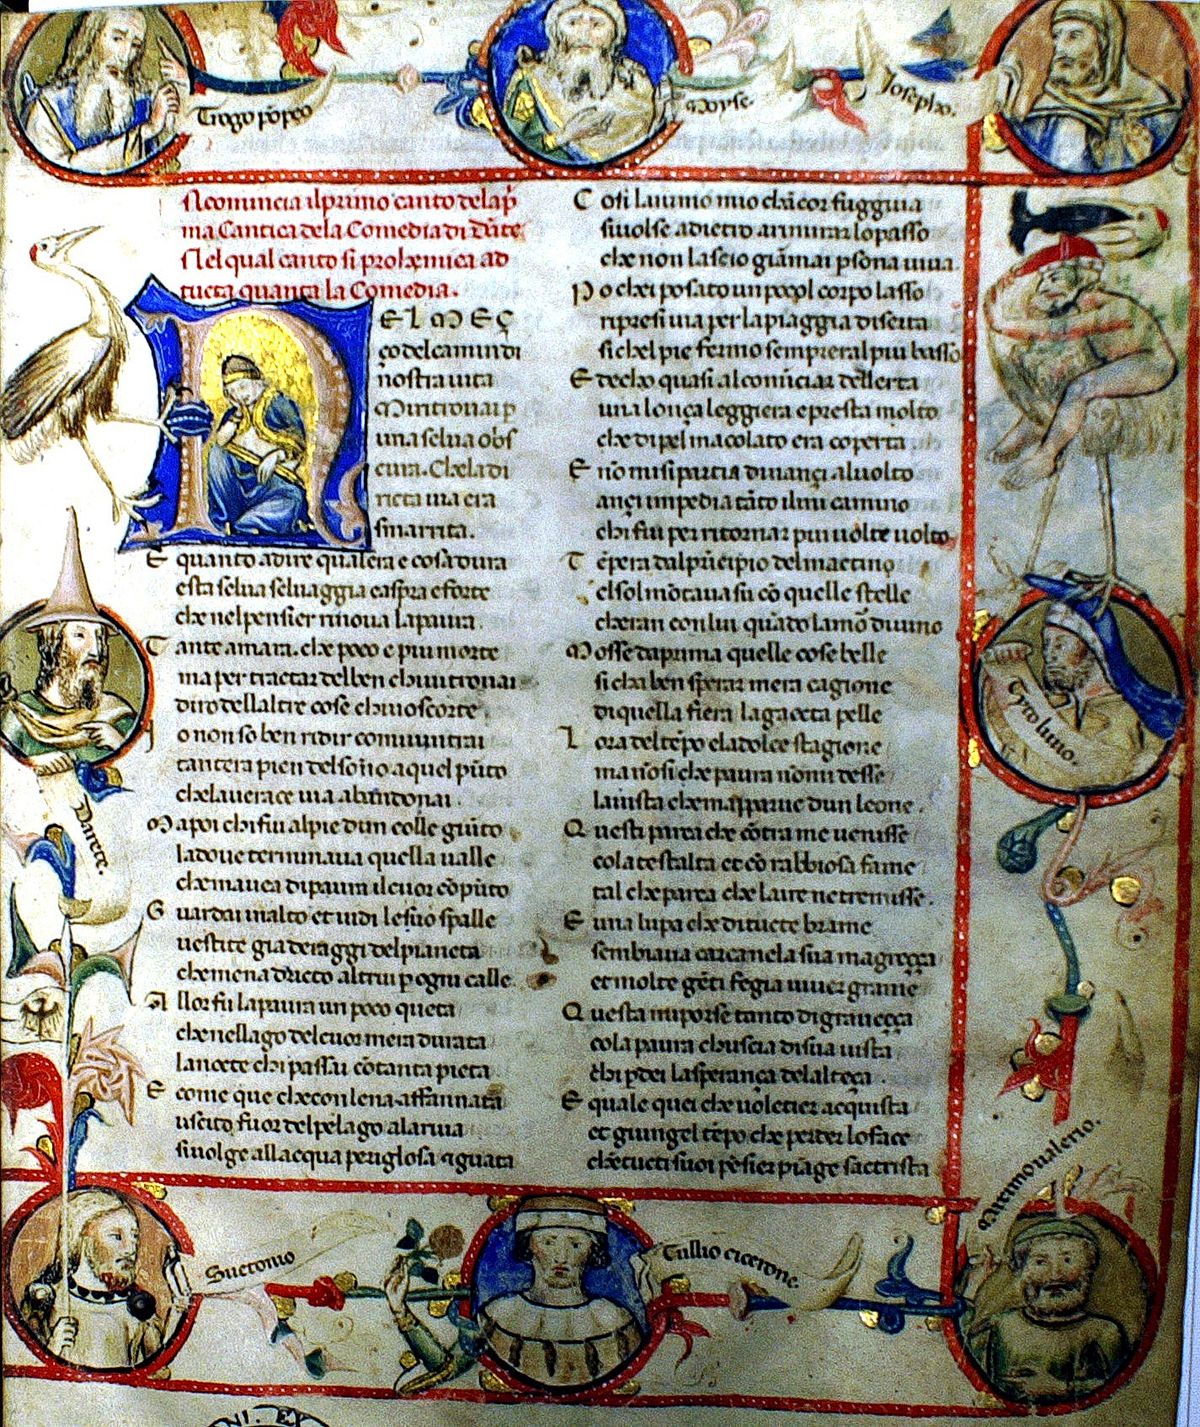 Trogo põpeo
Moyse.
Josepho.
Acomincia ilprimo canto delap̃
ma Cantica dela Comedia di Dãte
Nel qual canto si prohemica ad
tucta quanta la Comedia.
NEL MEÇ
ço del camin di
nostra uita
Mi ritrouai p
una selua obs
cura. Che la di
ricta uia era
smarrita.
E quanto adire qualera e cosa dura
esta selua seluaggia easpra eforte
che nel pensier rinoua lapaura.
Tante amara. che poco e piu morte
ma per tractar delben chiui trouai
diro dellaltre cose chiuo scorte
Io non so ben ridir comiuintrai
tantera pien del sõno aquel pũto
che lauerace uia abandonai.
Ma poi chi fui alpie dun colle giũto
ladoue terminaua quella ualle
che mauea di paura il cuor cõpũto
Guardai inalto et uidi le suo spalle
uestite gia deraggi del pianeta
che mena dricto altrui p ogni calle.
Allor fu la paura un poco queta
che nellago del cuor mera durata
lanocte chi passai cõ tanta pieta
E come que che con lena affannata
uscito fuor del pelago ala riua
si uolge allacqua perigliosa & guata
Cosi lanimo mio chãcor fuggiua
si uolse adietro arimirar lo passo
che non lascio giãmai psona uiua.
Po chei posato un poco il corpo lasso
ripresi uia per la piaggia diserta
si chel pie fermo sempre eral piu basso
Edecho quasi al comĩciar dellerta
una lonça leggiera e presta molto
che di pel macolato era coperta
E nõ mi si partia dinançi aluolto
ançi impedia tãto il mi camino
chi fui per ritornar piu uolte uolto
Tẽpera dalprĩcipio del mactino
el sol mõtaua su cõ quelle stelle
cheran con lui quãdo lamor diuino
Mosse daprima quelle cose belle
si cha ben sperar mera cagione
di quella fiera lagaeta pelle
Lora del tẽpo ela dolce stagione
ma nõ si che paura nõ mi desse
lauista che mapparue dun leone.
Questi parea che cõtra me uenisse
cola testalta et cõ rabbiosa fame
tal che parea che laire ne tremisse.
E una lupa che di tucte brame
sembiaua carca nela sua magreçça
et molte gẽti fe gia uiuer grame
Questa mi porse tanto di graueçça
cola paura chuscia di sua uista
chi pdei la sperança delalteçça.
E quale quei che uoletier acquista
et giungel tẽpo che perder lo face
chẽ tucti suoi pẽsier piãge sactrista
Darete.
Tito liuio.
Suetonio
Tullio cicerone.
Maximo ualerio.
NI. EX